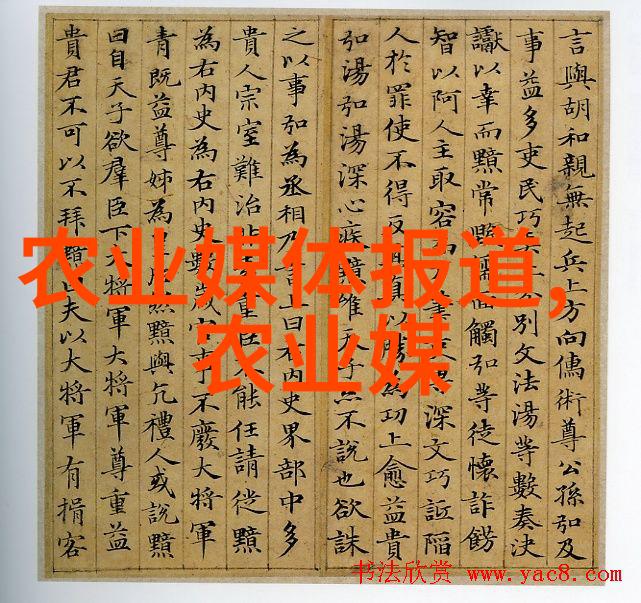 言與胡和親無起兵上方向儒術尊公孫弘及
事益多吏民巧別文法湯等數奏決
讞以幸而黯常毀儒面觸弘等徒懷詐飾
智以阿人主取容深文巧詆陷
人於罪使不得反真以勝為功上愈益貴
弘湯弘湯深心疾黯唯天子亦不說也欲誅
之以事弘為丞相乃言上曰右內史界部中多
貴人宗室難治非重臣能任請徙黯
為右內史為右內史數歲官事不廢大將軍
青既益尊姊為然黯與亢禮人或說黯
曰自天子欲羣臣下大將軍大將軍尊重益
貴君不可以不拜黯曰夫以大將軍有揖客
农业媒体报道,
农业媒
书法欣赏 www.yac8.com